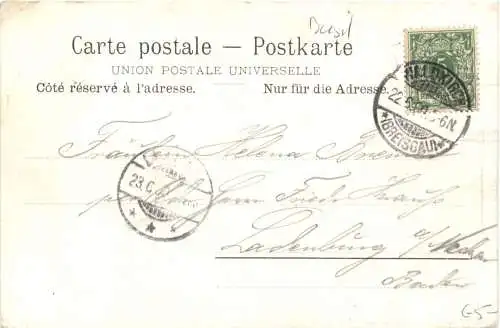 Basel
Carte postale — Postkarte
UNION POSTALE UNIVERSELLE
Côté réservé à l'adresse. Nur für die Adresse.
WALDKIRCH
22.6. 5-6N.
*(BREISGAU)*
Fräulein Helena
23.6.
Friedr. Krauß
Ladenburg a/Neckar
Baden
65-